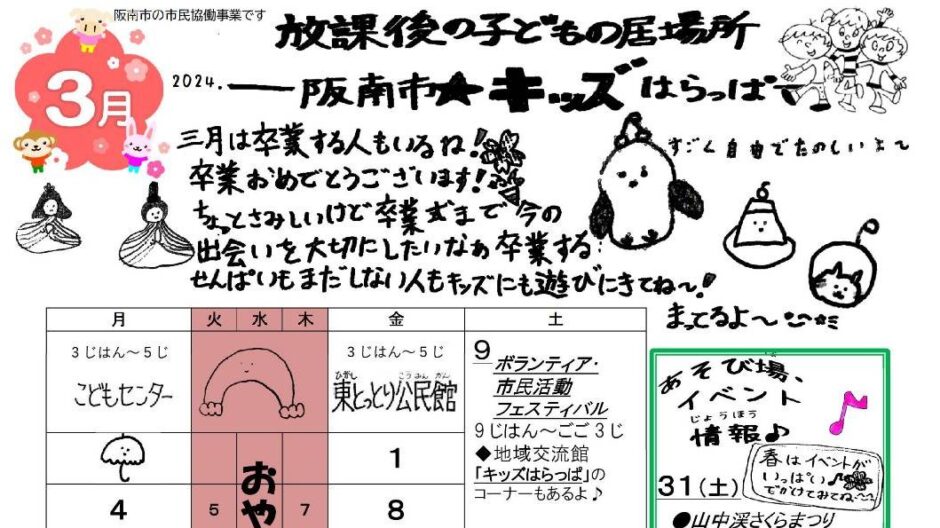 阪南市の市民協働事業です
放課後の子どもの居場所
3月
2024.
阪南市★キッズはらっぱ
三月は卒業する人もいるね!
卒業おめでとうございます!
ちょっとさみしいけど卒業式まで今の
出会いを大切にしたいなぁ卒業する
せんぱいもまだしない人もキッズにも遊びにきてね〜!
すごく自由でたのしいよ〜
まってるよ〜
月 火 水 木 金 土
3じはん〜5じ
こどもセンター
3じはん〜5じ
ひがし こうみんかん
東とっとり公民館
9
ボランティア・
市民活動
フェスティバル
9じはん〜ごご3じ
◆地域交流館
「キッズはらっぱ」の
コーナーもあるよ♪
1
4 5 おや 7 8
あそび場、
イベント
じょうほう
情報♪
春はイベントが
いっぱい♪
でかけてみてね〜
31(土)
●山中渓さくらまつり